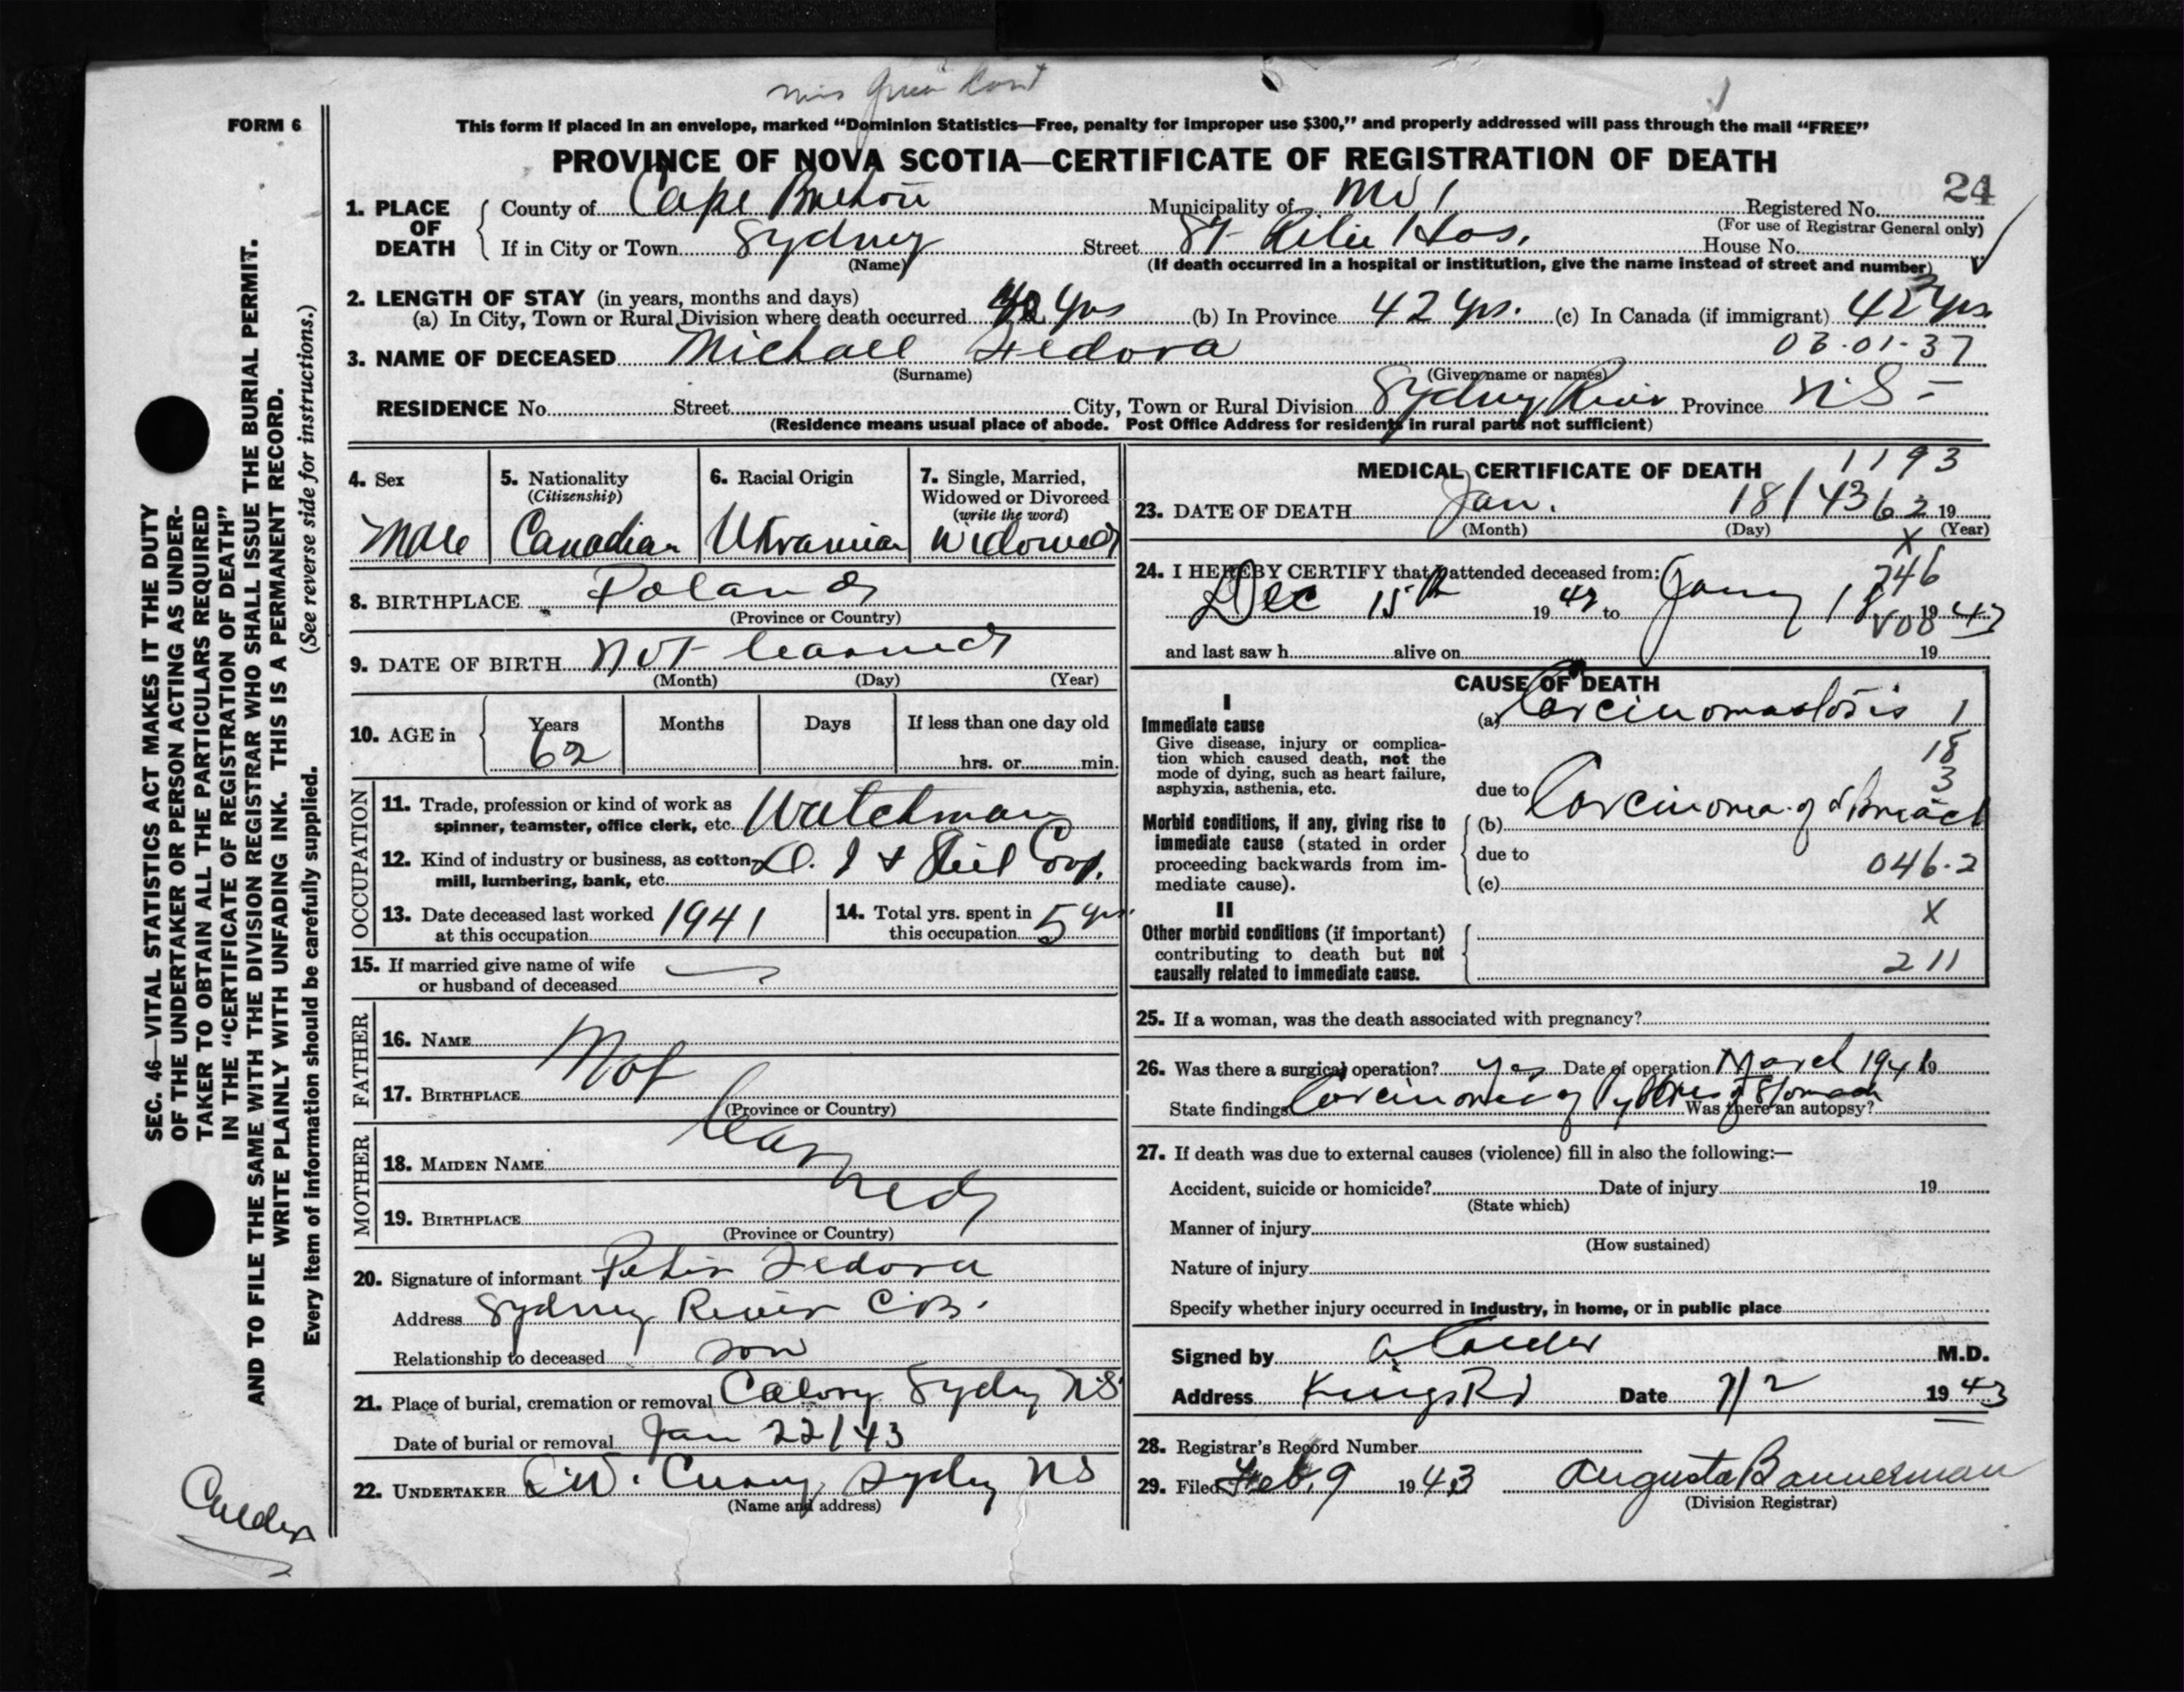 FORM 6
This form if placed in an envelope, marked “Dominion Statistics—Free, penalty for improper use $300,” and properly addressed will pass through the mail “FREE”
PROVINCE OF NOVA SCOTIA—CERTIFICATE OF REGISTRATION OF DEATH
24
1. PLACE OF DEATH County of Cape Breton Municipality of Registered No.
(For use of Registrar General only)
If in City or Town Sydney Street St Hos. House No.
(Name) (If death occurred in a hospital or institution, give the name instead of street and number)
2. LENGTH OF STAY (in years, months and days)
(a) In City, Town or Rural Division where death occurred yrs (b) In Province 42 yrs. (c) In Canada (if immigrant) 42 yrs.
3. NAME OF DECEASED Michael Fedora 03-01-37
(Surname) (Given name or names)
RESIDENCE No. Street City, Town or Rural Division Sydney River Province NS -
(Residence means usual place of abode. Post Office Address for residents in rural parts not sufficient)
4. Sex Male
5. Nationality (Citizenship) Canadian
6. Racial Origin Ukranian
7. Single, Married, Widowed or Divorced (write the word) Widowed
8. BIRTHPLACE Poland
(Province or Country)
9. DATE OF BIRTH Not learned
(Month) (Day) (Year)
10. AGE in Years Months Days If less than one day old
62 hrs. or min.
OCCUPATION
11. Trade, profession or kind of work as
spinner, teamster, office clerk, etc. Watchman
12. Kind of industry or business, as cotton-
mill, lumbering, bank, etc. D. I & Steel Corp.
13. Date deceased last worked
at this occupation 1941
14. Total yrs. spent in
this occupation 5 yrs.
15. If married give name of wife
or husband of deceased
FATHER
16. NAME Not
17. BIRTHPLACE
(Province or Country)
MOTHER
learned
18. MAIDEN NAME
19. BIRTHPLACE
(Province or Country)
20. Signature of informant Peter Fedora
Address Sydney River C.B.
Relationship to deceased son
21. Place of burial, cremation or removal Calvary Sydney NS
Date of burial or removal Jan 22/43
22. UNDERTAKER Curry, Sydney NS
(Name and address)
MEDICAL CERTIFICATE OF DEATH 1193
23. DATE OF DEATH Jan. 18/43 62 19
(Month) (Day) X (Year)
24. I HEREBY CERTIFY that I attended deceased from: 746
Dec 15th 19 42 to Jany 18 19 43
and last saw h alive on 19
CAUSE OF DEATH
I
Immediate cause (a) Carcinomatosis 1
Give disease, injury or complica-
tion which caused death, not the
mode of dying, such as heart failure,
asphyxia, asthenia, etc. due to
18
3
Morbid conditions, if any, giving rise to
immediate cause (stated in order
proceeding backwards from im-
mediate cause).
(b) Carcinoma of
due to
(c) 046-2
II X
Other morbid conditions (if important)
contributing to death but not
causally related to immediate cause. 211
25. If a woman, was the death associated with pregnancy?
26. Was there a surgical operation? yes Date of operation March 1941 19
State findings Carcinoma of Pylorus of Stomach Was there an autopsy?
27. If death was due to external causes (violence) fill in also the following:—
Accident, suicide or homicide? Date of injury 19
(State which)
Manner of injury
(How sustained)
Nature of injury
Specify whether injury occurred in industry, in home, or in public place
Signed by Calder M.D.
Address Kings Rd Date 7/2 19 43
28. Registrar's Record Number
29. Filed Feb. 9 19 43 Augusta Bannerman
(Division Registrar)
SEC. 46—VITAL STATISTICS ACT MAKES IT THE DUTY
OF THE UNDERTAKER OR PERSON ACTING AS UNDER-
TAKER TO OBTAIN ALL THE PARTICULARS REQUIRED
IN THE “CERTIFICATE OF REGISTRATION OF DEATH”
AND TO FILE THE SAME WITH THE DIVISION REGISTRAR WHO SHALL ISSUE THE BURIAL PERMIT.
WRITE PLAINLY WITH UNFADING INK. THIS IS A PERMANENT RECORD.
Every item of information should be carefully supplied. (See reverse side for instructions.)
Calder